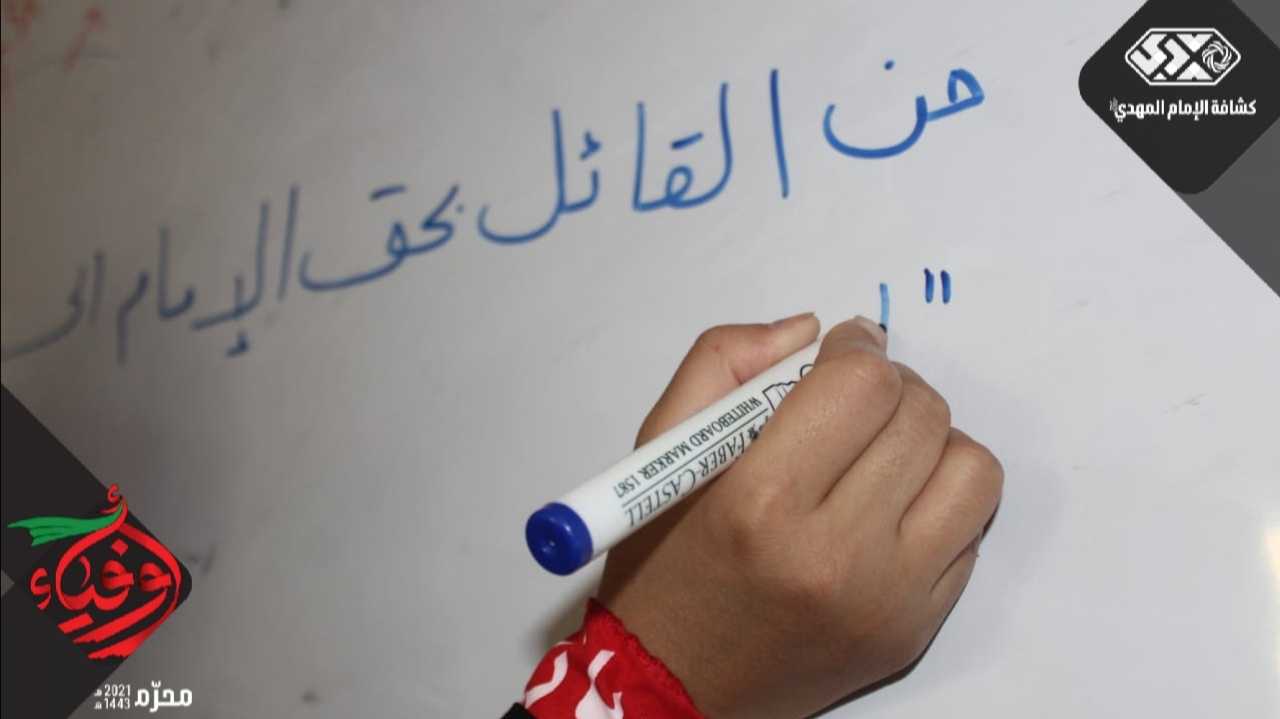 كشافة الإمام المهدي
من القائل بحق الإمام
" ا
WHITEBOARD MARKER 1587
FABER-CASTELL
أوفياء
محرّم 2021 م
1443 هـ